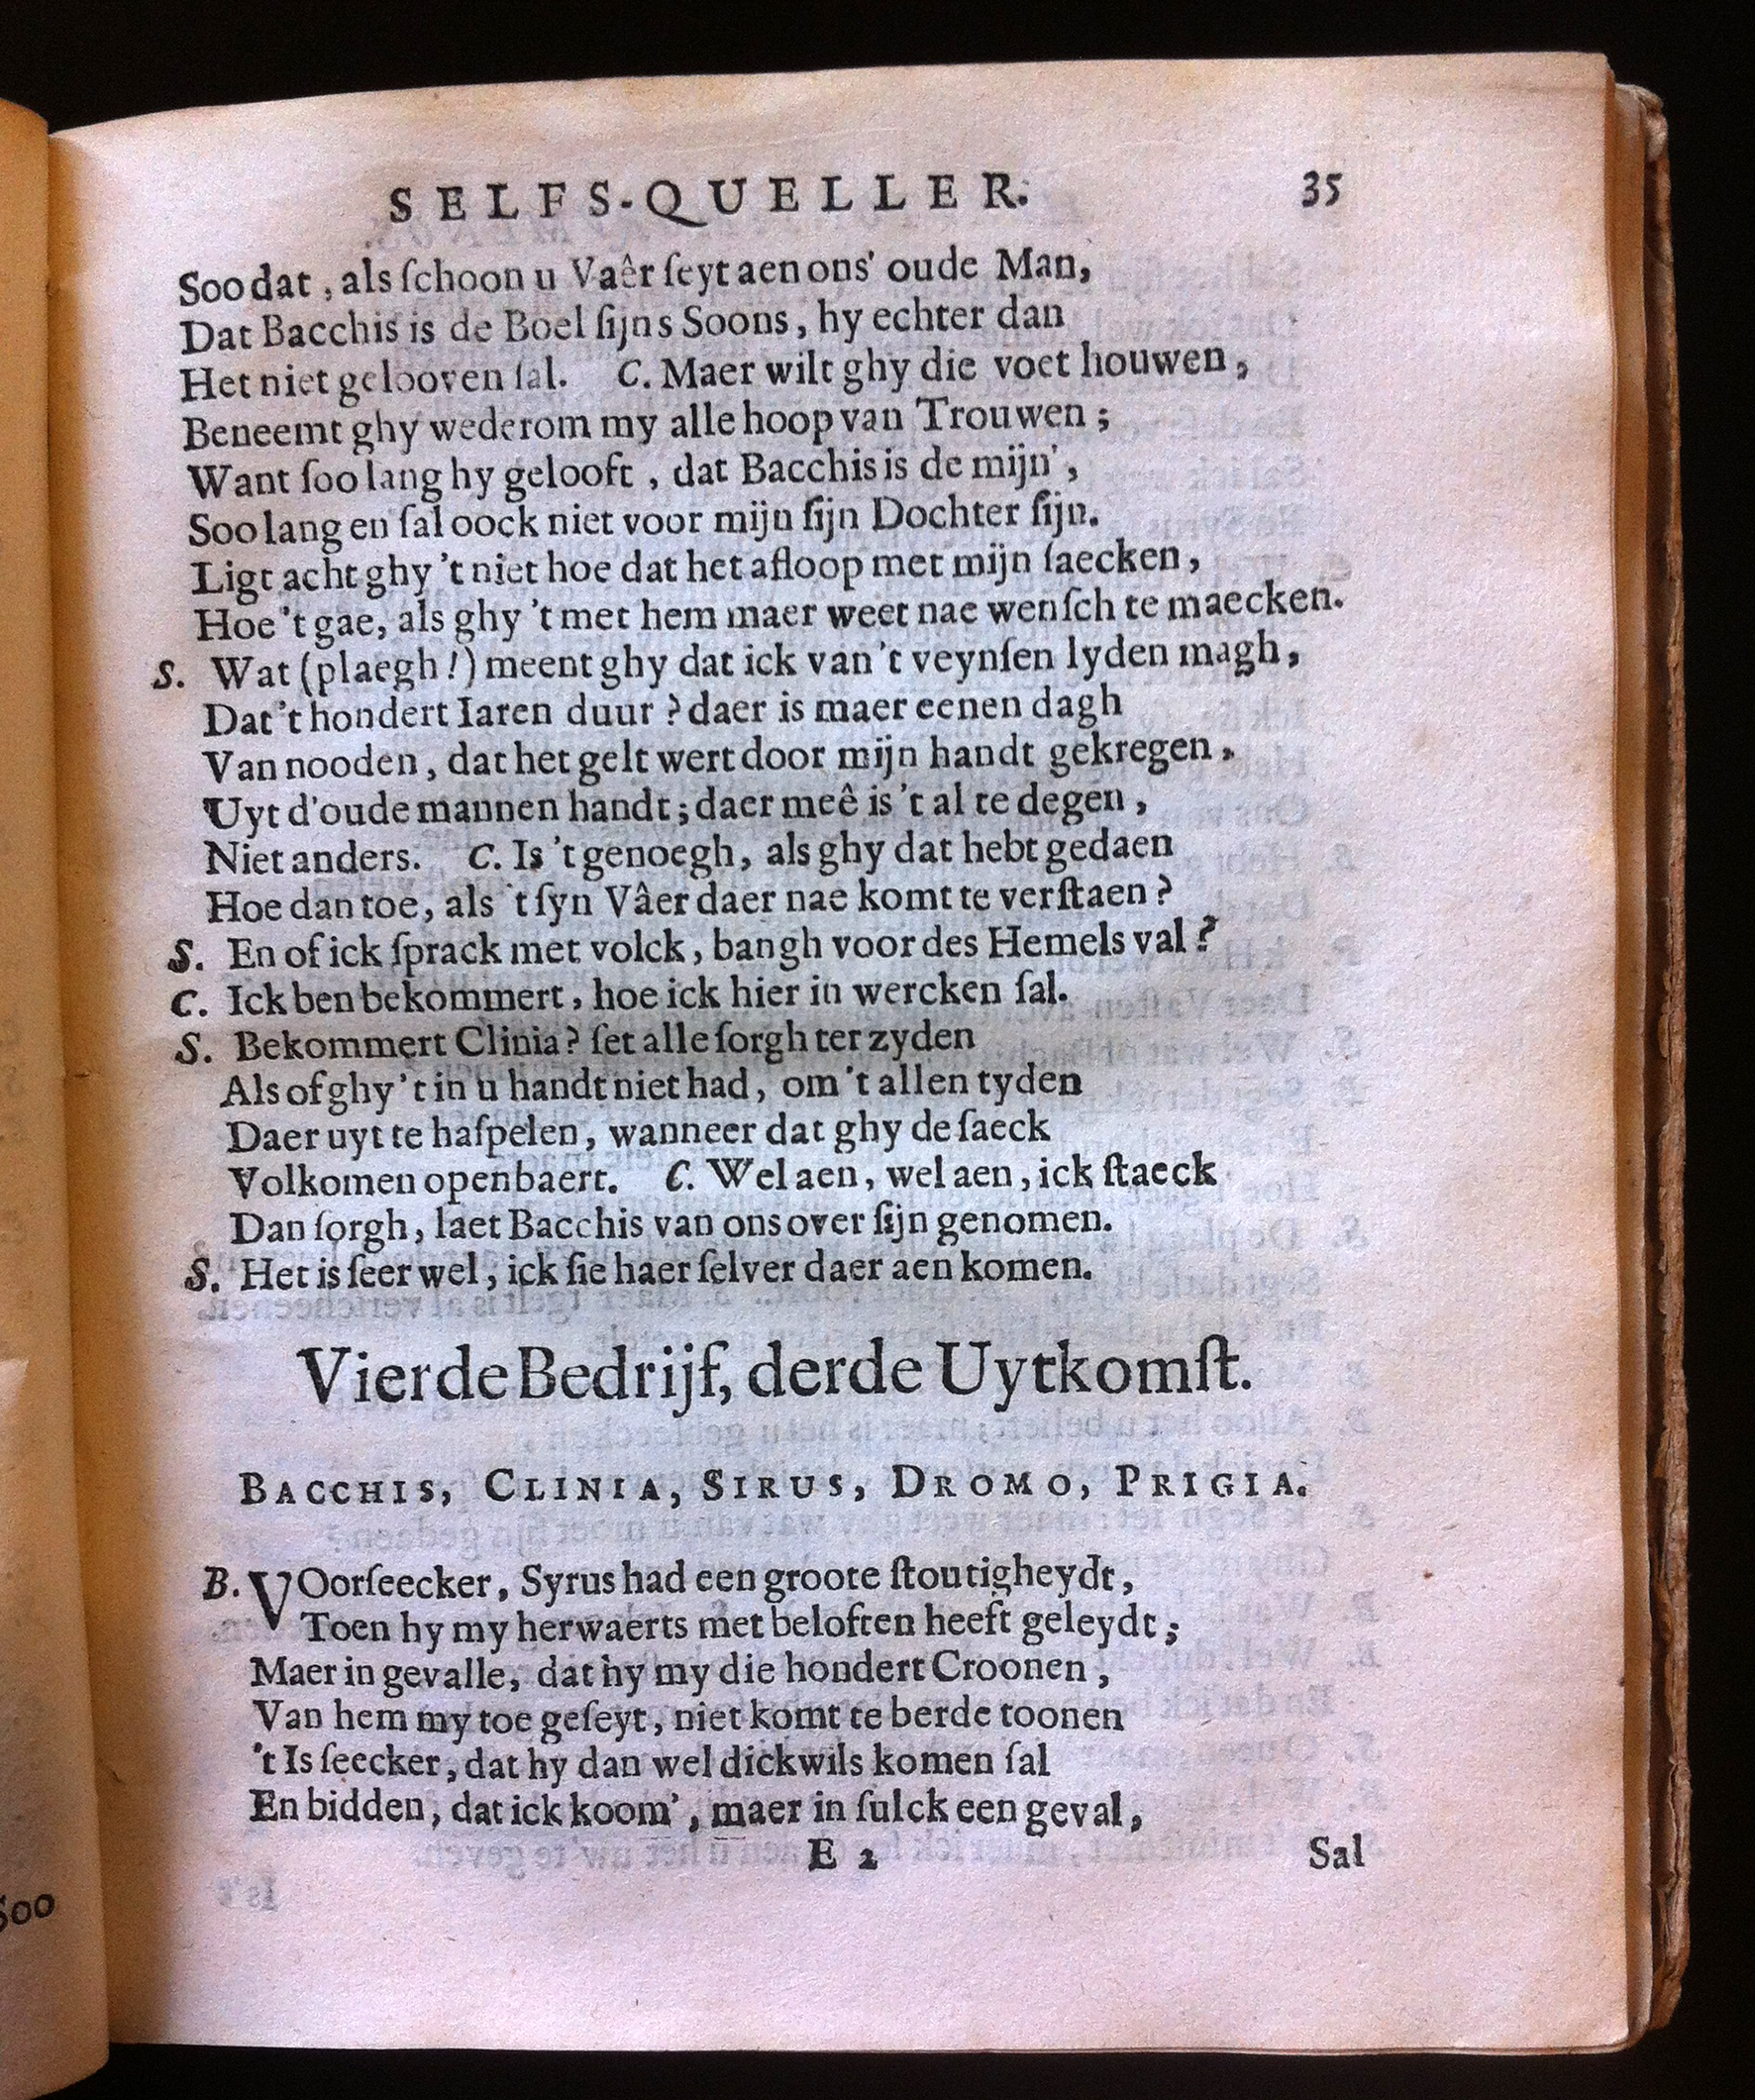 SELFS-QUELLER. 35
Soo dat, als ſchoon u Vaêr ſeyt aen ons' oude Man,
Dat Bacchis is de Boel ſijns Soons, hy echter dan
Het niet gelooven ſal. C. Maer wilt ghy die voet houwen,
Beneemt ghy wederom my alle hoop van Trouwen;
Want ſoo lang hy gelooft, dat Bacchis is de mijn',
Soo lang en ſal oock niet voor mijn ſijn Dochter ſijn.
Ligt acht ghy 't niet hoe dat het afloop met mijn ſaecken,
Hoe 't gae, als ghy 't met hem maer weet nae wenſch te maecken.
S. Wat (plaegh!) meent ghy dat ick van 't veynſen lyden magh,
Dat 't hondert Iaren duur? daer is maer eenen dagh
Van nooden, dat het gelt wert door mijn handt gekregen,
Uyt d'oude mannen handt; daer meê is 't al te degen,
Niet anders. C. Is 't genoegh, als ghy dat hebt gedaen
Hoe dan toe, als 't ſyn Vâer daer nae komt te verſtaen?
S. En of ick ſprack met volck, bangh voor des Hemels val?
C. Ick ben bekommert, hoe ick hier in wercken ſal.
S. Bekommert Clinia? ſet alle ſorgh ter zyden
Als of ghy 't in u handt niet had, om 't allen tyden
Daer uyt te haſpelen, wanneer dat ghy de ſaeck
Volkomen openbaert. C. Wel aen, wel aen, ick ſtaeck
Dan ſorgh, laet Bacchis van ons over ſijn genomen.
S. Het is ſeer wel, ick ſie haer ſelver daer aen komen.
Vierde Bedrijf, derde Uytkomſt.
BACCHIS, CLINIA, SIRUS, DROMO, PRIGIA.
B. VOorſeecker, Syrus had een groote ſtoutigheydt,
Toen hy my herwaerts met beloften heeft geleydt;
Maer in gevalle, dat hy my die hondert Croonen,
Van hem my toe geſeyt, niet komt te berde toonen
't Is ſeecker, dat hy dan wel dickwils komen ſal
En bidden, dat ick koom', maer in ſulck een geval,
E 2 Sal
Soo